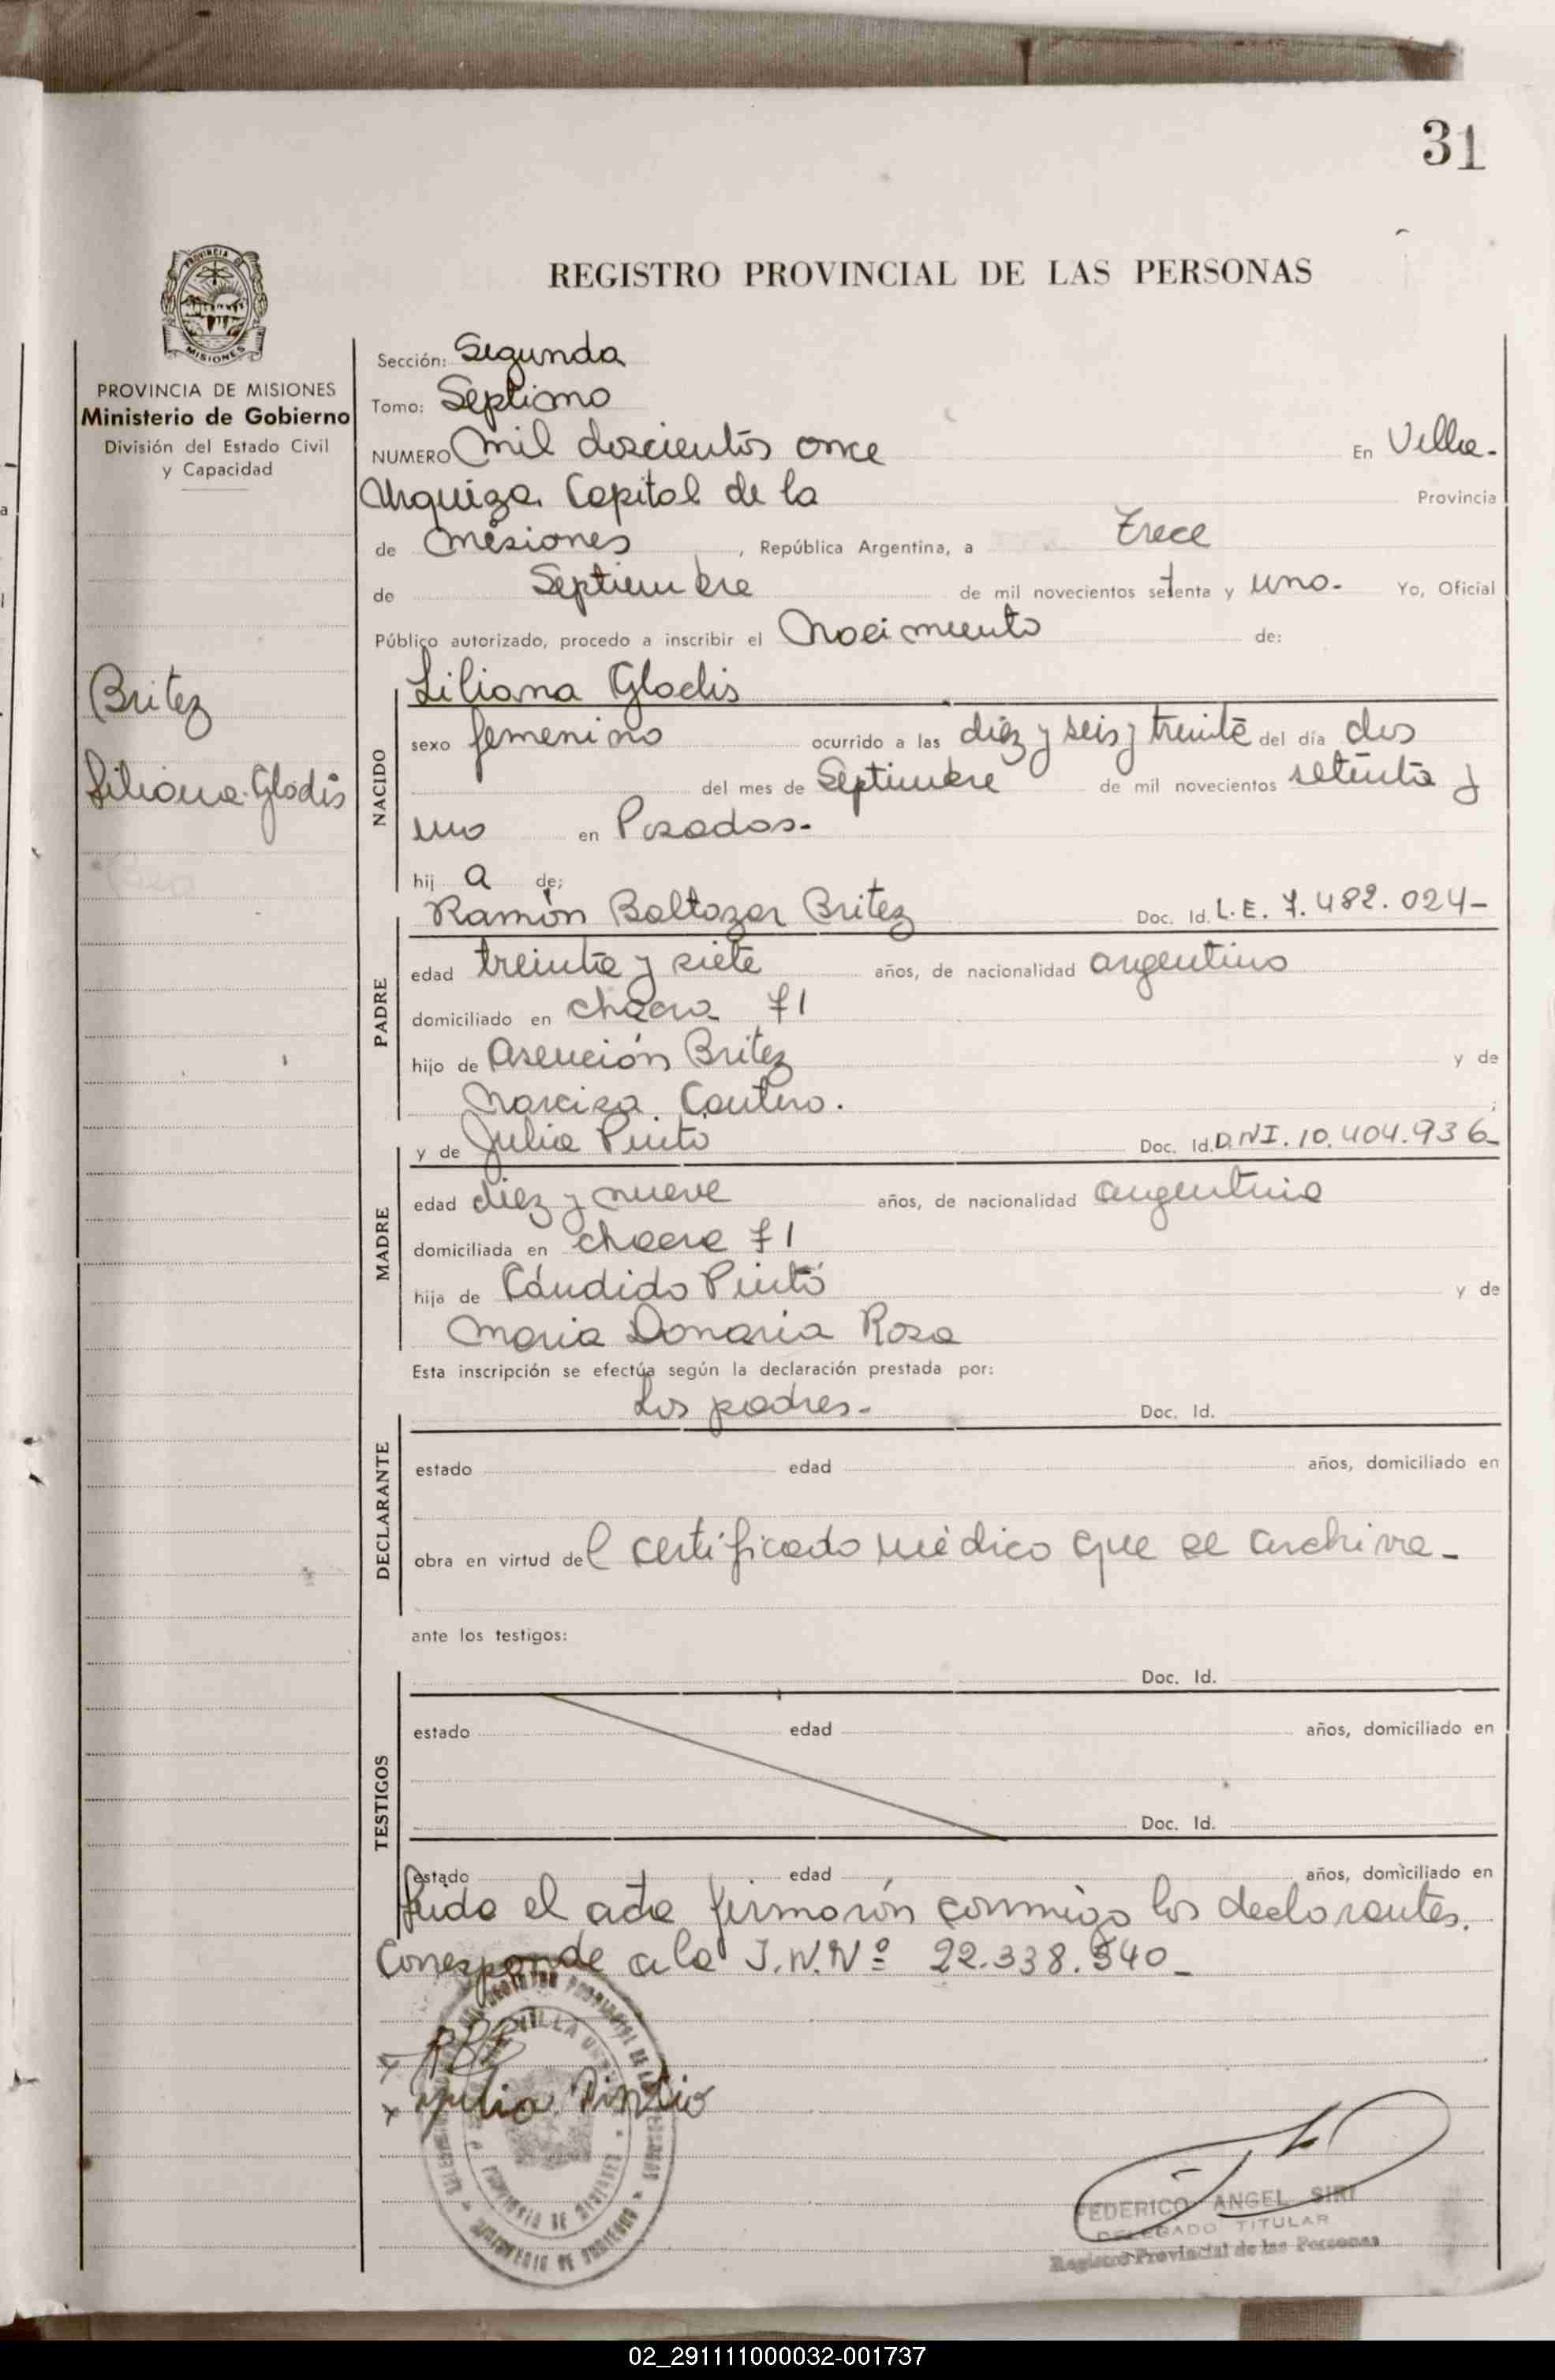 31
REGISTRO PROVINCIAL DE LAS PERSONAS
PROVINCIA DE MISIONES
Ministerio de Gobierno
División del Estado Civil
y Capacidad
Britez
Liliana Gladis
Sección: Segunda
Tomo: Septimo
NUMERO Mil doscientos once En Villa-
Urquiza Capital de la Provincia
de Misiones, República Argentina, a trece
de Septiembre de mil novecientos setenta y uno- Yo, Oficial
Público autorizado, procedo a inscribir el Nacimiento de:
NACIDO
Liliana Gladis
sexo femenino ocurrido a las diez y seis y treinta del día dos
del mes de Septiembre de mil novecientos setenta y
uno en Posadas-
hij a de;
PADRE
Ramón Baltazar Britez Doc. Id. L.E. 7.482.024-
edad treinta y siete años, de nacionalidad argentino
domiciliado en chacra 71
hijo de Asención Britez y de
Narcisa Cantero.
MADRE
y de Julia Pinto Doc. Id. D.N.I. 10.404.936-
edad diez y nueve años, de nacionalidad argentina
domiciliada en chacra 71
hija de Cándido Pinto y de
Maria Donaria Rosa
Esta inscripción se efectúa según la declaración prestada por:
DECLARANTE
Los padres- Doc. Id.
estado edad años, domiciliado en
obra en virtud del certificado médico que se archiva-
ante los testigos:
TESTIGOS
Doc. Id.
estado edad años, domiciliado en
Doc. Id.
estado edad años, domiciliado en
Leida el acta firmarón conmigo los declarantes.
Corresponde a la I.N.Nº 22.338.540-
Julia Pintio
FEDERICO ANGEL SIRI
DELEGADO TITULAR
Registro Provincial de las Personas
02_291111000032-001737